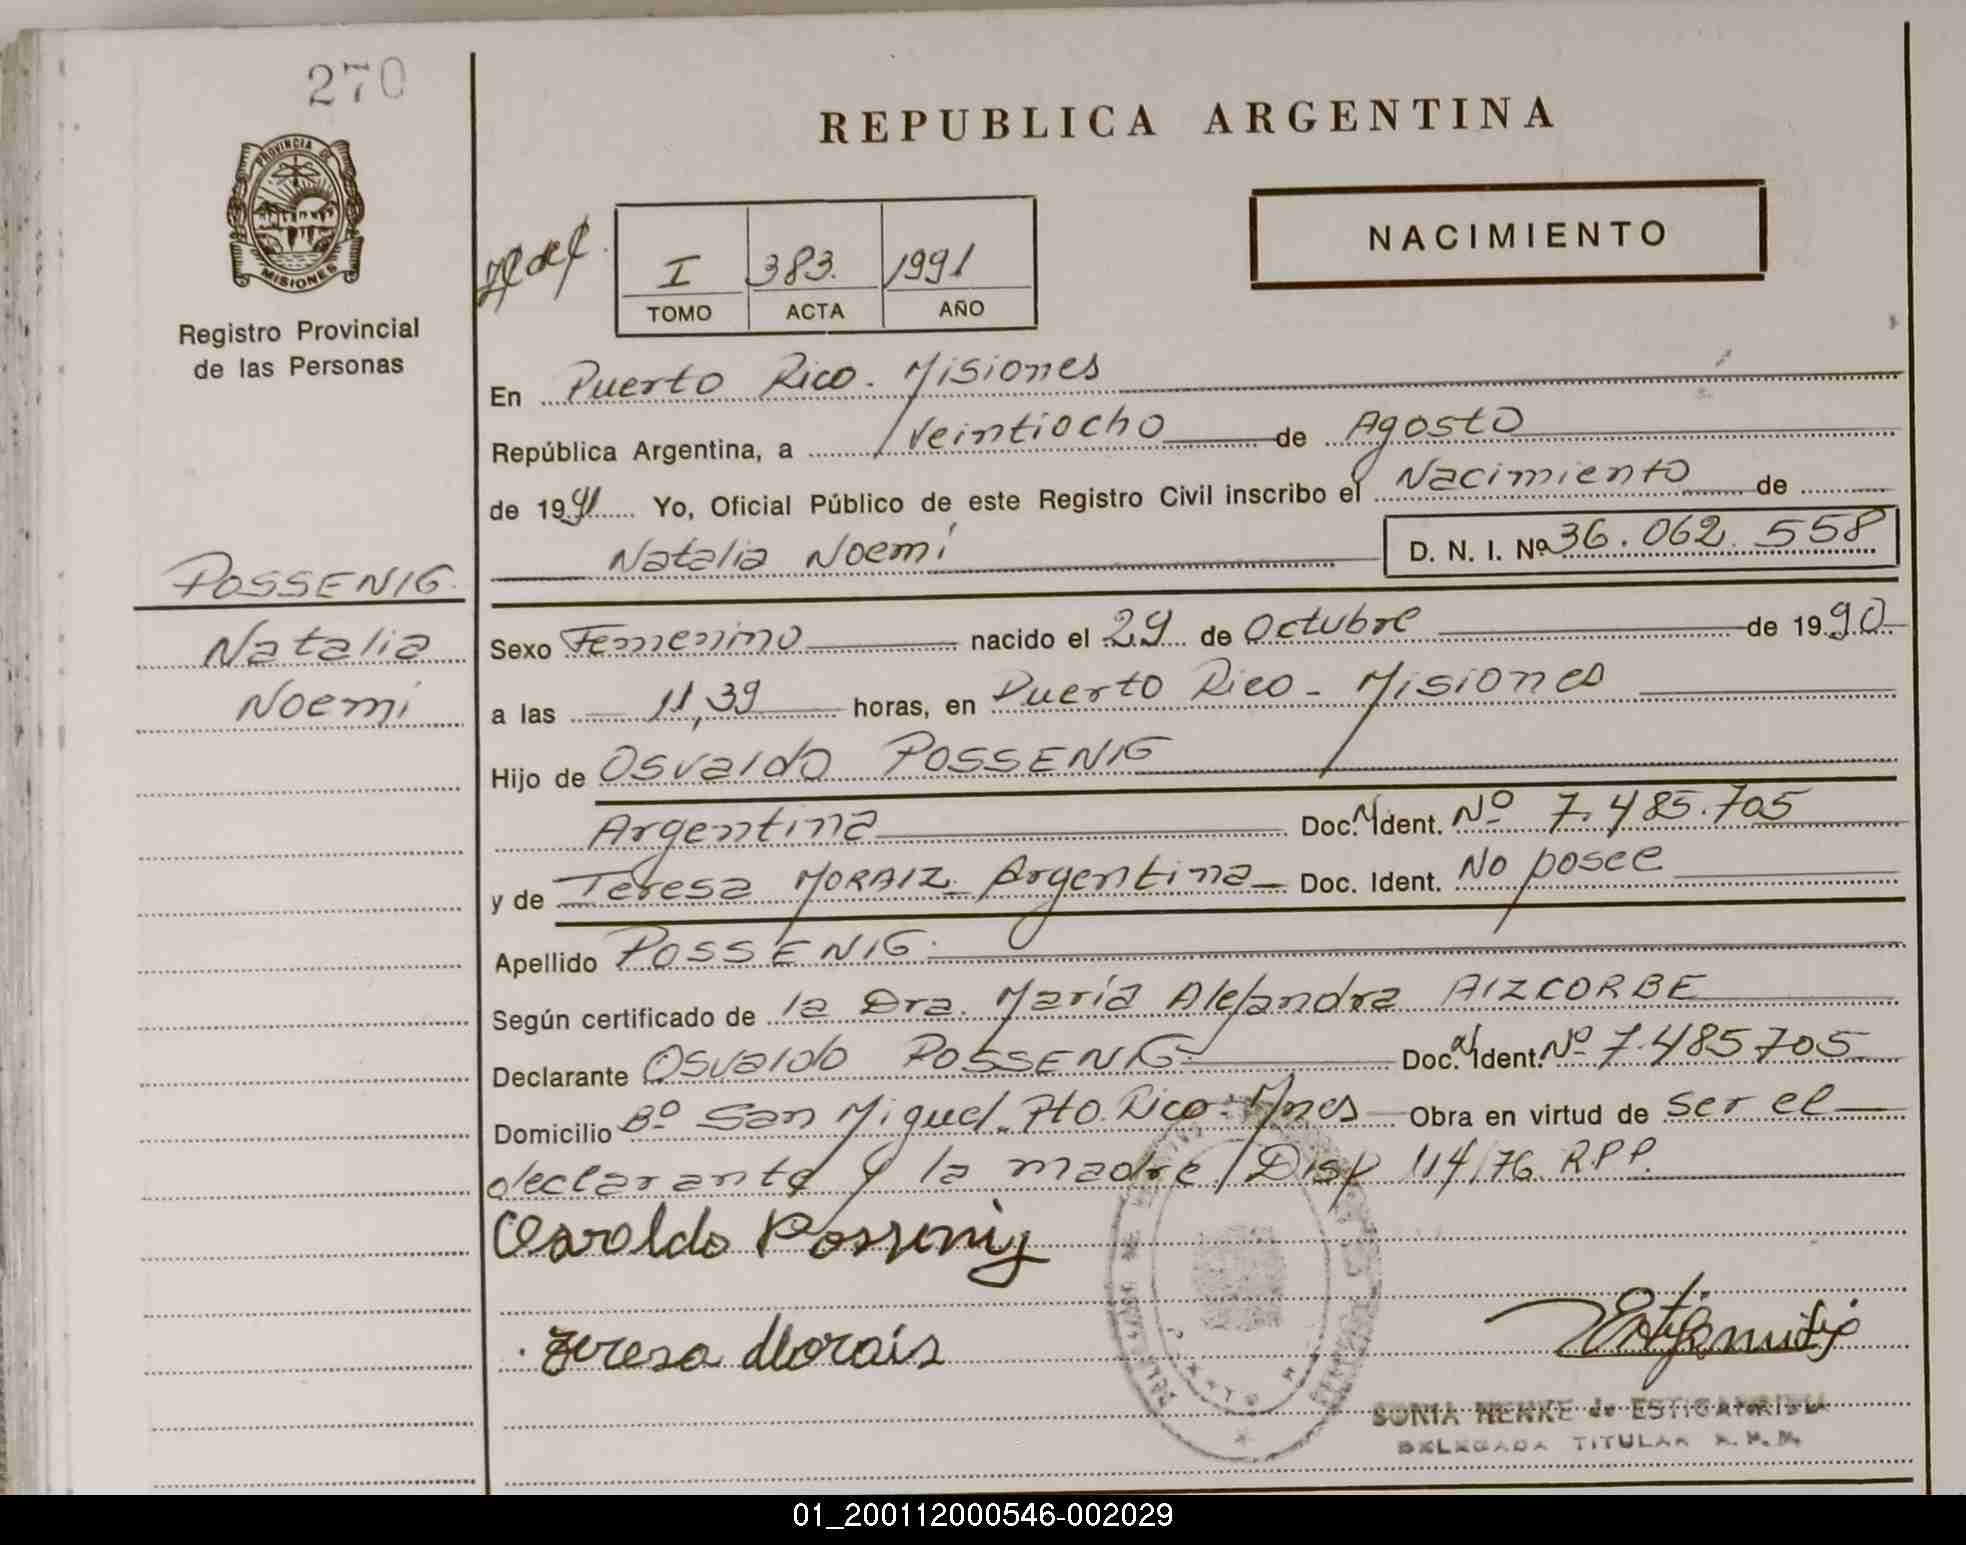 270
REPUBLICA ARGENTINA
PROVINCIA DE
MISIONES
Registro Provincial
de las Personas
NACIMIENTO
I 383. 1991
TOMO ACTA AÑO
En Puerto Rico. Misiones
República Argentina, a Veintiocho de Agosto
de 1991 Yo, Oficial Público de este Registro Civil inscribo el Nacimiento de
Natalia Noemí D. N. I. Nº 36.062.558
POSSENIG.
Natalia
Noemí
Sexo Femenino nacido el 29 de Octubre de 1990
a las 11,39 horas, en Puerto Rico - Misiones
Hijo de Osvaldo POSSENIG
Argentina Doc. N Ident. Nº 7.485.705
y de Teresa MORAIZ - Argentina - Doc. Ident. No posee
Apellido POSSENIG.
Según certificado de la Dra. María Alejandra AIZCORBE
Declarante Osvaldo POSSENIG - Doc. N Ident. Nº 7.485705
Domicilio Bº San Miguel. Pto. Rico - Mnes Obra en virtud de ser el
declarante y la madre / Disp 114/76 R.P.P.
Osvaldo Possenig
Teresa Morais
SONIA NENKE de ESTIGARRIBIA
DELEGADA TITULAR
01_200112000546-002029